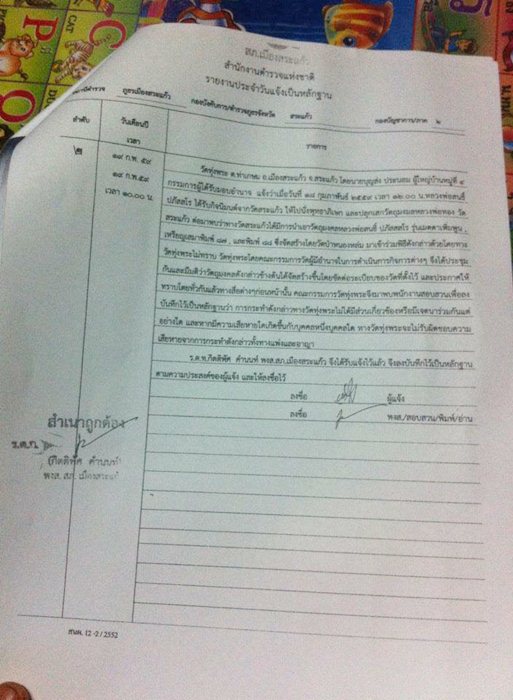 สภ.เมืองสระแก้ว
สำนักงานตำรวจแห่งชาติ
รายงานประจำวันแจ้งเป็นหลักฐาน
ภูธรเมืองสระแก้ว กองบังคับการ/ตำรวจภูธรจังหวัด สระแก้ว กองบัญชาการ/ภาค ๒
ลำดับ วันเดือนปี รายการ
เวลา
๑๙ ก.พ. ๕๙ วัดทุ่งพระ ต.ท่าเกษม อ.เมืองสระแก้ว จ.สระแก้ว โดยนายบุญส่ง ประนอม ผู้ใหญ่บ้านหมู่ที่ ๔
๑๙ ก.พ.๕๙ กรรมการผู้ได้รับมอบอำนาจ แจ้งว่าเมื่อวันที่ ๑๘ กุมภาพันธ์ ๒๕๕๙ เวลา ๑๒.๐๐ น.หลวงพ่อสนธิ์
เวลา ๑๐.๐๐ น. ปภัสสโร ได้รับกิจนิมนต์จากวัดสระแก้ว ให้ไปนั่งพุทธาภิเษก และปลุกเสกวัตถุมงคลหลวงพ่อทอง วัด
สระแก้ว ต่อมาพบว่าทางวัดสระแก้วได้มีการนำเอาวัตถุมงคลหลวงพ่อสนธิ์ ปภัสสโร รุ่นเมตตาเพิ่มพูน
เหรียญเสมาพิมพ์ ๘๗ , และพิมพ์ ๘๘ ซึ่งจัดสร้างโดยวัดป่าหนองหล่ม มาเข้าร่วมพิธีดังกล่าวด้วยโดยทาง
วัดทุ่งพระไม่ทราบ วัดทุ่งพระโดยคณะกรรมการวัดผู้มีอำนาจในการดำเนินการกิจการต่างๆ จึงได้ประชุม
กันและมีมติว่าวัตถุมงคลดังกล่าวข้างต้นได้จัดสร้างขึ้นโดยขัดต่อระเบียบของวัดที่ตั้งไว้ และประกาศให้
ทราบโดยทั่วกันแล้วทางสื่อต่างๆก่อนหน้านั้น คณะกรรมการวัดทุ่งพระจึงมาพบพนักงานสอบสวนเพื่อลง
บันทึกไว้เป็นหลักฐานว่า การกระทำดังกล่าว ทางวัดทุ่งพระไม่ได้มีส่วนเกี่ยวข้องหรือมีเจตนาร่วมกันแต่
อย่างใด และหากมีความเสียหายใดเกิดขึ้นกับบุคคลหนึ่งบุคคลใด ทางวัดทุ่งพระจะไม่รับผิดชอบความ
เสียหายจากการกระทำดังกล่าวทั้งทางแพ่งและอาญา
ร.ต.ท.กิตติพัศ คำนนท์ พงส.สภ.เมืองสระแก้ว จึงได้รับแจ้งไว้แล้ว จึงลงบันทึกไว้เป็นหลักฐาน
ตามความประสงค์ของผู้แจ้ง และให้ลงชื่อไว้
ลงชื่อ ผู้แจ้ง
ลงชื่อ พงส./สอบสวน/พิมพ์/อ่าน
สำเนาถูกต้อง
ร.ต.ท.
กิตติพัศ คำนนท์
พงส. สภ. เมืองสระแก้ว
สนผ. 12 -2 / 2552